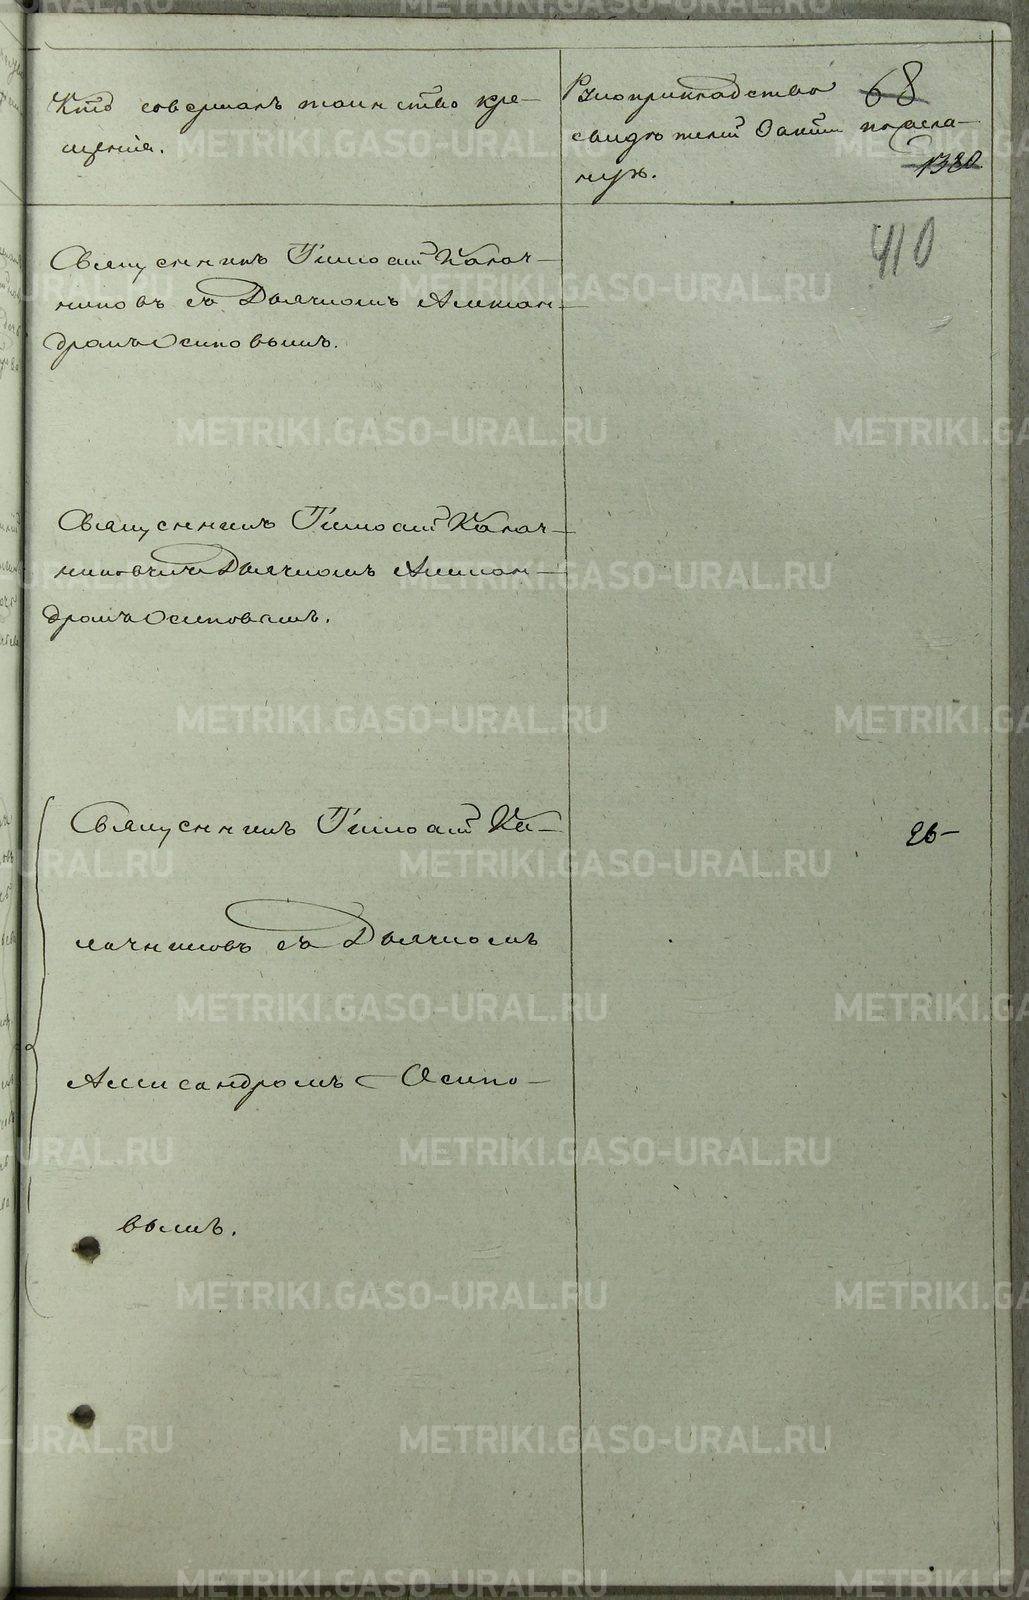 Кто совершалъ таинство кре-
щенія.
Рукоприкладство
свидѣтелей записи по жела-
нію.
68
1380
410
Священникъ Тимоѳей Калач-
никовъ съ Дьячкомъ Алексан-
дромъ Осиповымъ.
Священникъ Тимоѳей Калач-
никовъ съ Дьячкомъ Алексан-
дромъ Осиповымъ.
Священникъ Тимоѳей Ка-
лачниковъ съ Дьячкомъ
Александромъ Осипо-
вымъ.
26-
METRIKI.GASO-URAL.RU